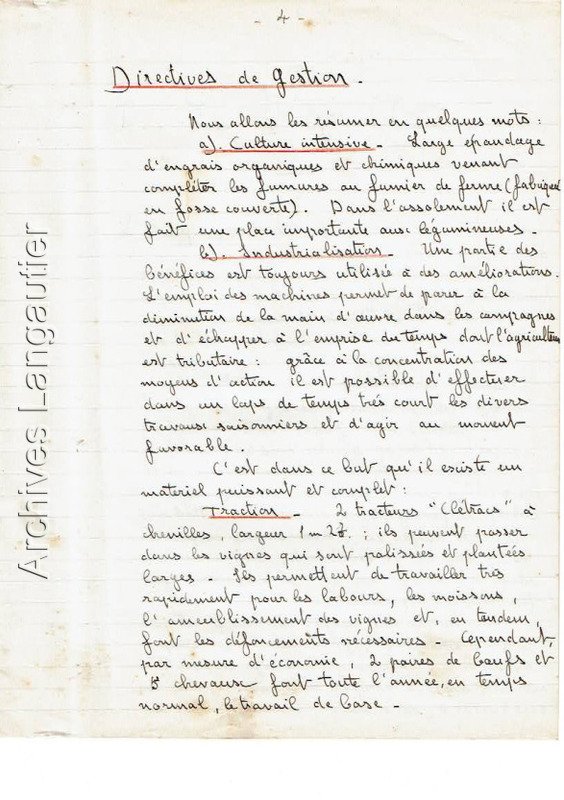 - 4 -
Directives de Gestion.
Nous allons les résumer en quelques mots :
a). Culture intensive - Large épandage
d'engrais organiques et chimiques venant
compléter les fumures au fumier de ferme (fabriqué
en fosse couverte). Dans l'assolement il est
fait une place importante aux légumineuses -
b). Industrialisation - Une partie des
bénéfices est toujours utilisée à des améliorations.
L'emploi des machines permet de parer à la
diminution de la main d'œuvre dans les campagnes
et d'échapper à l'emprise du temps dont l'agriculteur
est tributaire : grâce à la concentration des
moyens d'action il est possible d'effectuer
dans un laps de temps très court les divers
travaux saisonniers et d'agir au moment
favorable.
C'est dans ce but qu'il existe un
matériel puissant et complet :
Traction - 2 tracteurs "Clétracs" à
chenilles, largeur 1m ; ils peuvent passer
dans les vignes qui sont palissées et plantées
larges - Ils permettent de travailler très
rapidement pour les labours, les moissons,
l'ameublissement des vignes et, en tandem,
font les défoncements nécessaires - Cependant,
par mesure d'économie, 2 paires de bœufs et
5 chevaux font toute l'année, en temps
normal, le travail de base -
Archives Langautier